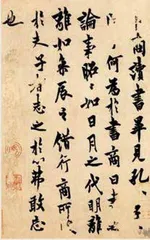 讀書畢見孔子
何為於書商曰書
論事昭昭如日月之代明離
離如參辰之錯行商所
於夫子者志之於心弗敢忘
也